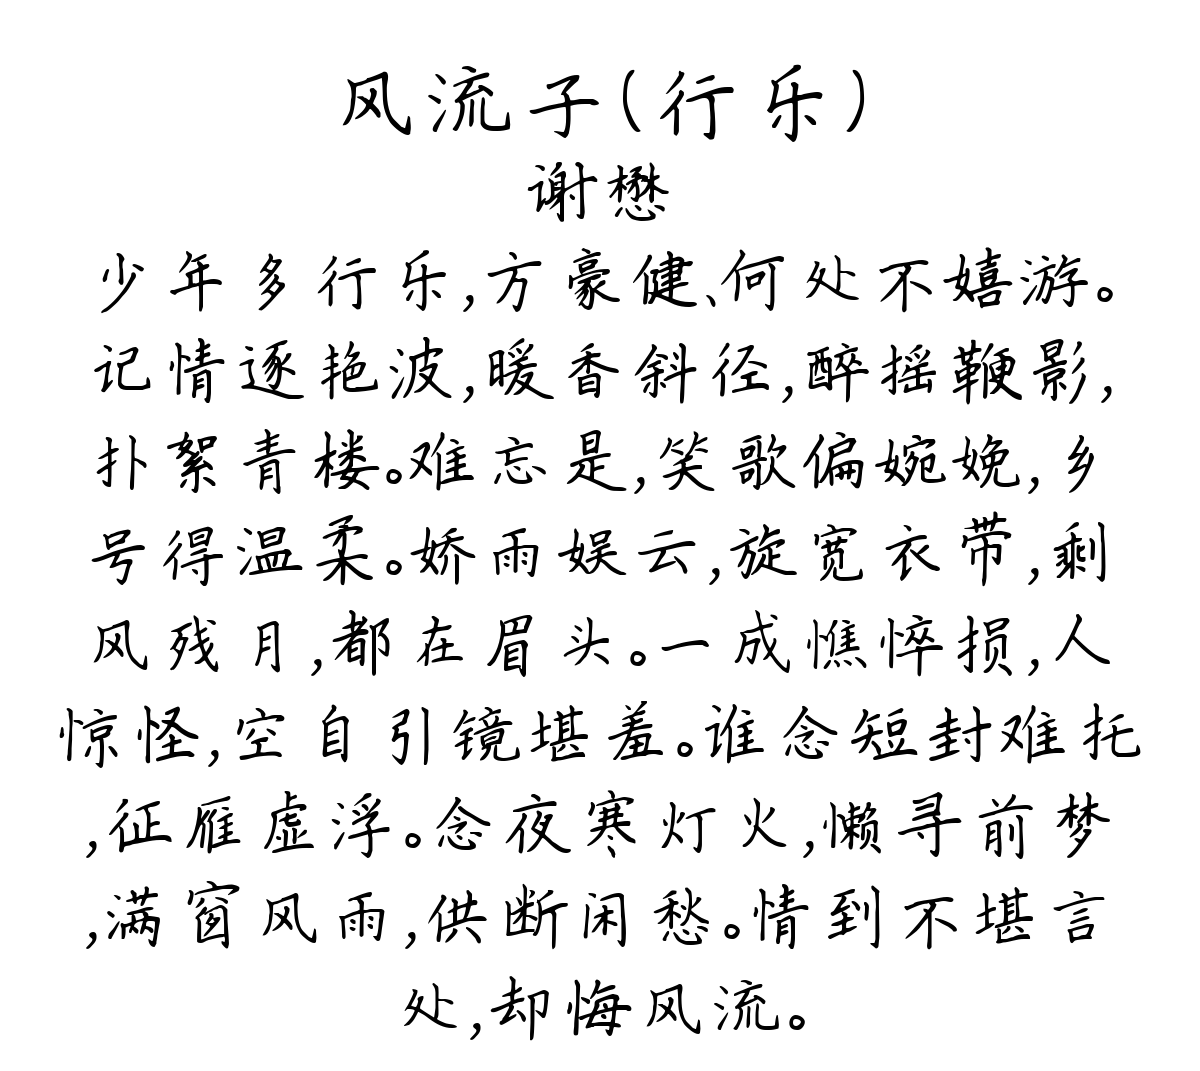 风流子(行乐)
谢懋
少年多行乐,方豪健、何处不嬉游。
记情逐艳波,暖香斜径,醉摇鞭影,
扑絮青楼。难忘是,笑歌偏婉娩,乡
号得温柔。娇雨娱云,旋宽衣带,剩
风残月,都在眉头。一成憔悴损,人
惊怪,空自引镜堪羞。谁念短封难托
,征雁虚浮。念夜寒灯火,懒寻前梦
,满窗风雨,供断闲愁。情到不堪言
处,却悔风流。